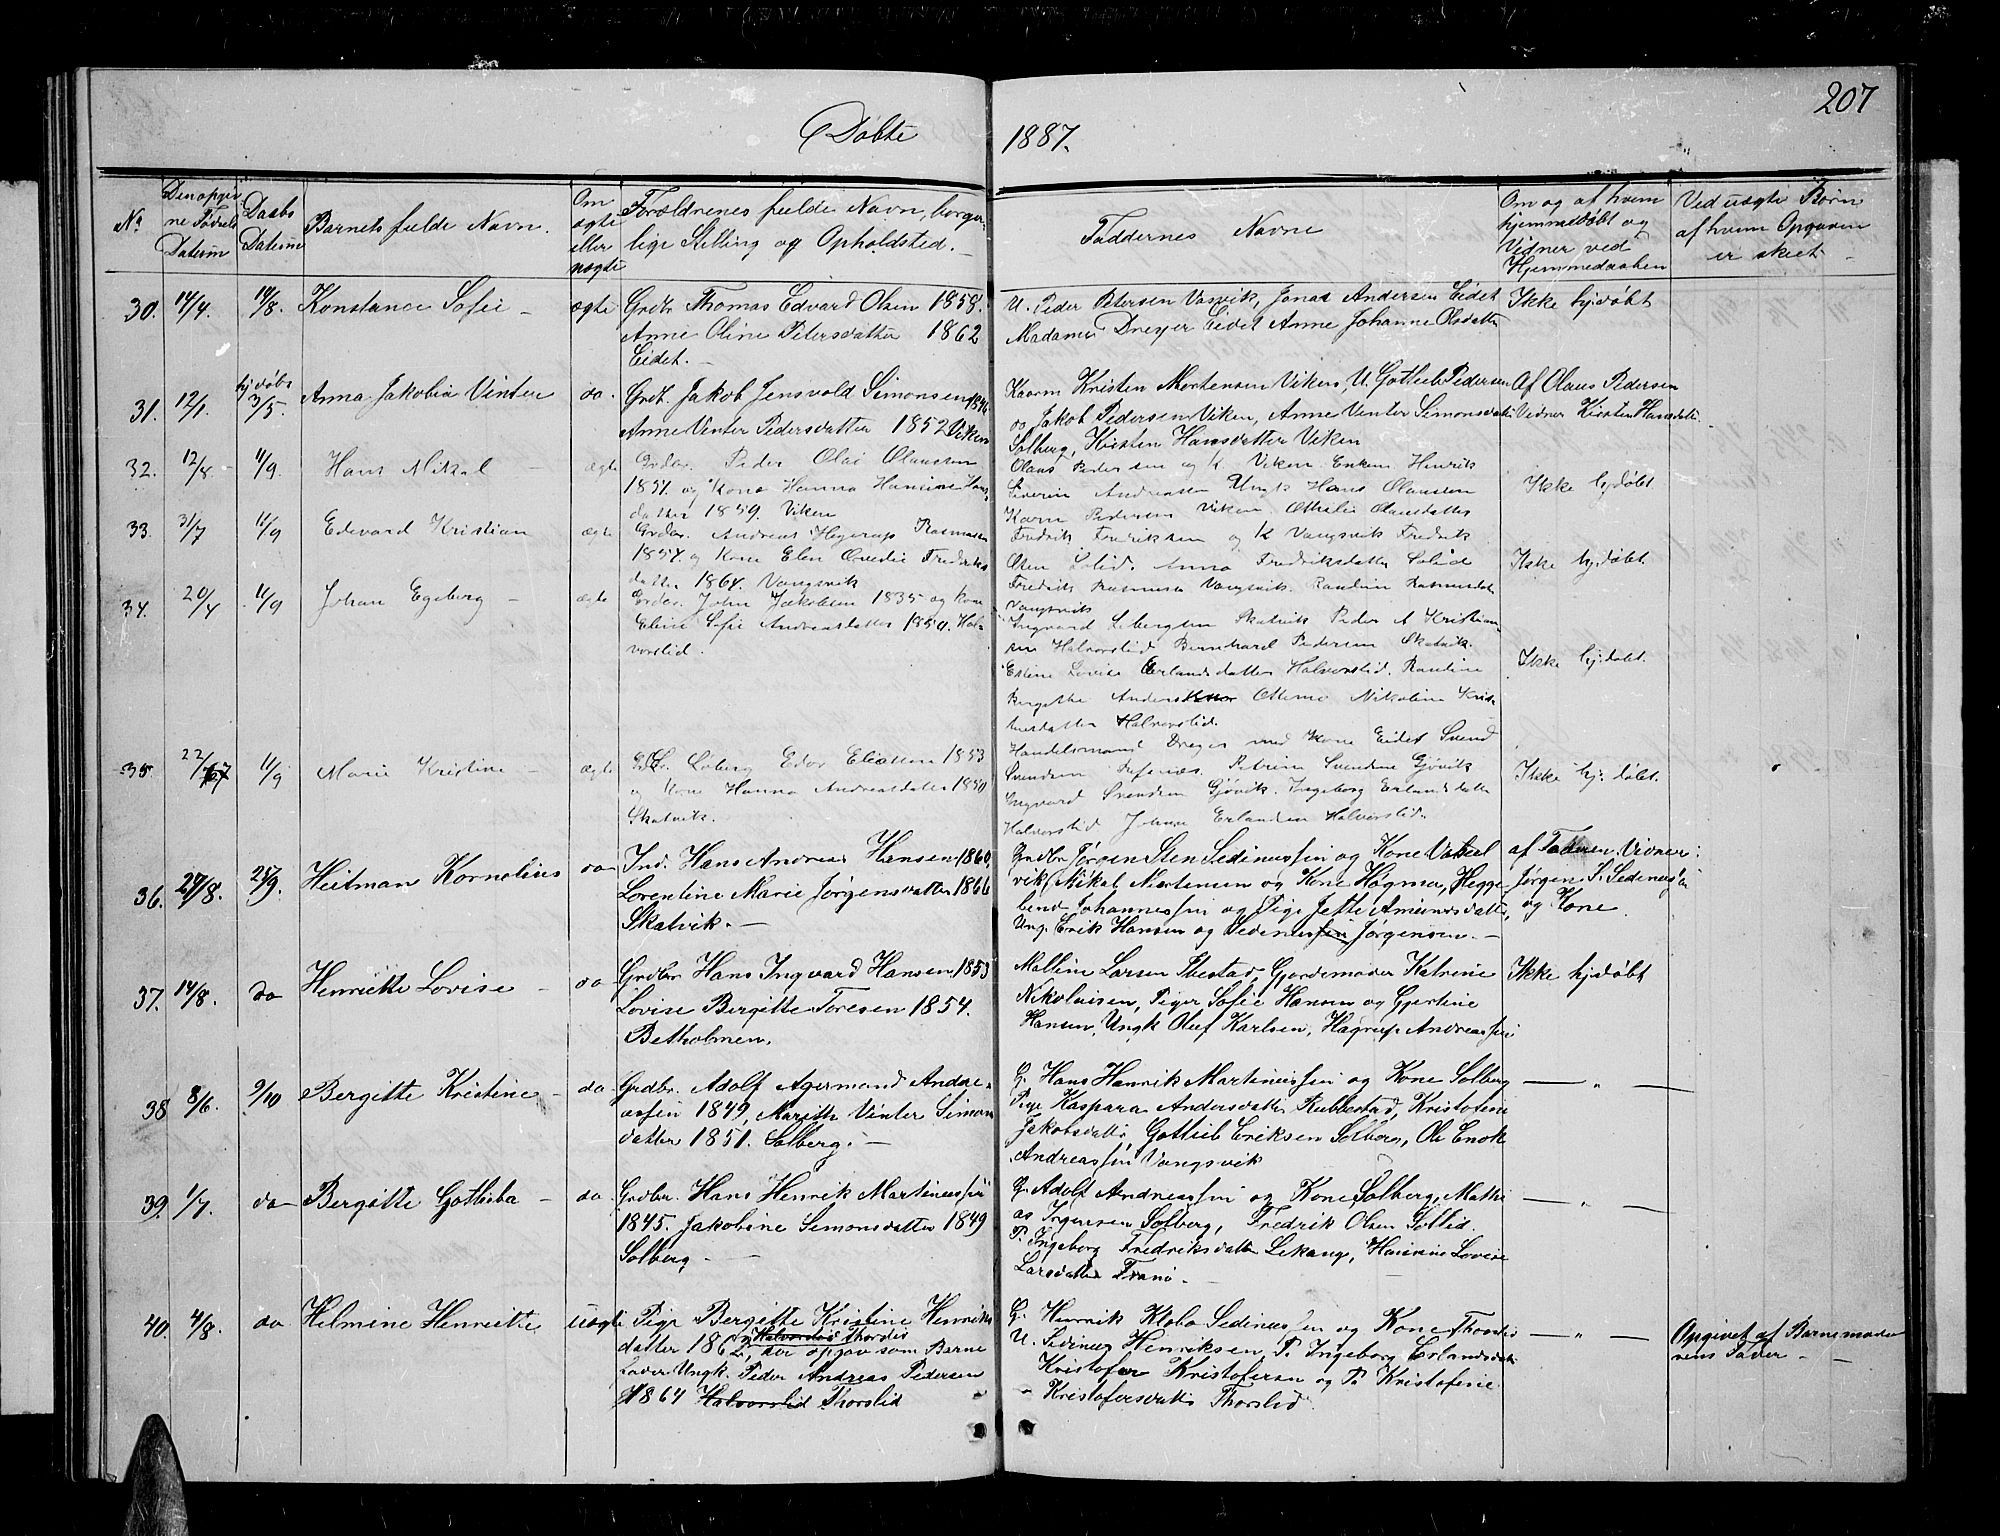 207
Døbte 1887.
No
Den opgiv-
ne Fødsels
Datum
Daabs
Datum
Barnets fulde Navn.
Om
ægte
eller
uægte
Forældrenes fulde Navn, borger-
lige Stilling og Opholdsted.
Faddernes Navne
Om og af hvem
hjemmedøbt og
Vidner ved
Hjemmedaaben
Ved uægte Børn
af hvem Opgaven
er skeet
30. 14/4. 14/8. Konstance Sofie ægte
Grdbr Thomas Edvard Olsen 1858.
Anne Oline Petersdatter 1862
Eidet.
U. Peder Petersen Vasvik, Jonas Andersen Eidet
Madame Dreyer Eidet Anne Johanne Olsdatter
Ikke hjdøbt
31. 12/1. hjdøbt 3/5. Anna Jakobia Vinter do.
Grdb. Jakob Jensvold Simonsen
Anne Vinter Pedersdatter 1852 Viken
Kaarm Kristen Mortensen Viken, U. Gotlieb Pedersen
og Jakob Pedersen Viken, Anne Venter Simonsdatter
Solberg, Kristen Hansdatter Viken
Af Olaus Pedersen
Vidner Kirsten Hansdatter
32. 12/8. 11/9. Hans Mikal ægte
Grdbr. Peder Olai Olaussen
1857. og Kone Hanna Hansine Hans-
datter 1859. Viken
Olaus Pedersen og K. Viken. Enken Henrik
Severin Andreasen Ungk Hans Olaussen
Karn Pedersen Viken Othelie Olausdatter
Ikke hjdøbt.
33. 31/7 11/9 Edevard Kristian ægte
Grdbr. Andreas Hegerup Rasmussen
1857. og Kone Elen Fredriks
datter 1864. Vangsvik
Fredrik Fredriksen og K Vangsvik Fredrik
Olsen Solid. Anna Fredriksdatter Solid
Fredrik Rasmussen Vangsvik. Randine Rasmusdat
Vangsvik
Ikke hjdøbt.
34. 20/4 11/9 Johan Egeberg ægte
Grdbr. John Jakobsen 1835 og Kone
Eline Sofie Andreasdatter 1850. Hal-
vorslid.
Ingvard Lobergsen Skatvik Peder A Kristian-
sen Halvorslid Bernhard Pedersen Skatvik.
Estine Lovise Erlandsdatter Halvorslid. Randine
Bergithe Anders Ottemo Nikoline Kris-
Halvorslid.
Ikke hj.døbt.
35. 22/7 11/9 Marie Kristine ægte
Loberg Edor Eliassen 1853
og Kone Hanna Andreasdatter 1850
Skatvik.
Handelsmand Dreyer med Kone Eidet Svend
Svendsen Refsnæs. Petrine Svendsen Gjøvik
Ingvard Svendsen Gjøvik. Ingeborg Erlandsdatter
Halvorslid Johan Erlandsen Halvorslid.
Ikke hj: døbt.
36. 27/8. 25/9. Heitman Kornelius do
Ind. Hans Andreas Hansen 1860
Lorentine Marie Jørgensdatter 1866
Skatvik.
Grdbr Jørgen Sten Sedeniussen og Kone
vik, Mikal Mortensen og Kone Høgmo, Hegge
lund Johannessen og Pige Jette Amundsdatter,
Ung. Erik Hansen og Sedeniussen Jørgensen.
af Faderen. Vidner:
Jørgen S. Sedeniussen
og Kone.
37. 14/8. do Henriette Lovise do
Grdbr. Hans Ingvard Hansen 1853
Lovise Bergitte Toresen 1854.
Betholmen.
Malline Larsen Ibestad, Gjordemoder Katrine
Nikolaisen, Piger Sofie Hansen og Gjertine
Hansen, Ungk Oluf Karlsen, Hagrup Andreassen
Ikke hjdøbt
38 8/6. 9/10 Bergitte Kristine do
Grdbr. Adolf Agermand Andre-
assen 1849, Marith Vinter Simons
datter 1851. Solberg.
G. Hans Henrik Martinussen og Kone Solberg
Pige Kaspara Andersdatter Rubbestad, Kristofine
Jakobsdatter, Gotlieb Eriksen Solberg, Ole Enok
Andreassen Vangsvik
— „ —
39. 1/7. do Bergitte Gotheba do
Grdbr. Hans Henrik Martinussen
1845. Jakobine Simonsdatter 1849
Solberg
G. Adolf Andreassen og Kone Solberg, Mathi
as Ingensen Solberg, Fredrik Olsen Sollid.
P. Ingeborg Fredriksdatter Lekang, Hansine Lovise
Larsdatter Tranø.
— „ —
40. 4/8. do Helmine Henriette Uægte
Pige Bergitte Kristine Henriks
datter 1862, Halvorslid Thorslid der opgav som Barne
fader Ungk. Peder Andreas Pedersen
1864 Halvorslid Thorslid
G. Henrik Klobo Sedeniussen og Kone Thorslid
U. Sedenius Henriksen, P. Ingeborg Erlandsdatter
Kristofer Kristofersen og P. Kristofine
Kristofersdatter Thorslid.
— „ —
Opgivet af Barnemode
rens Fader